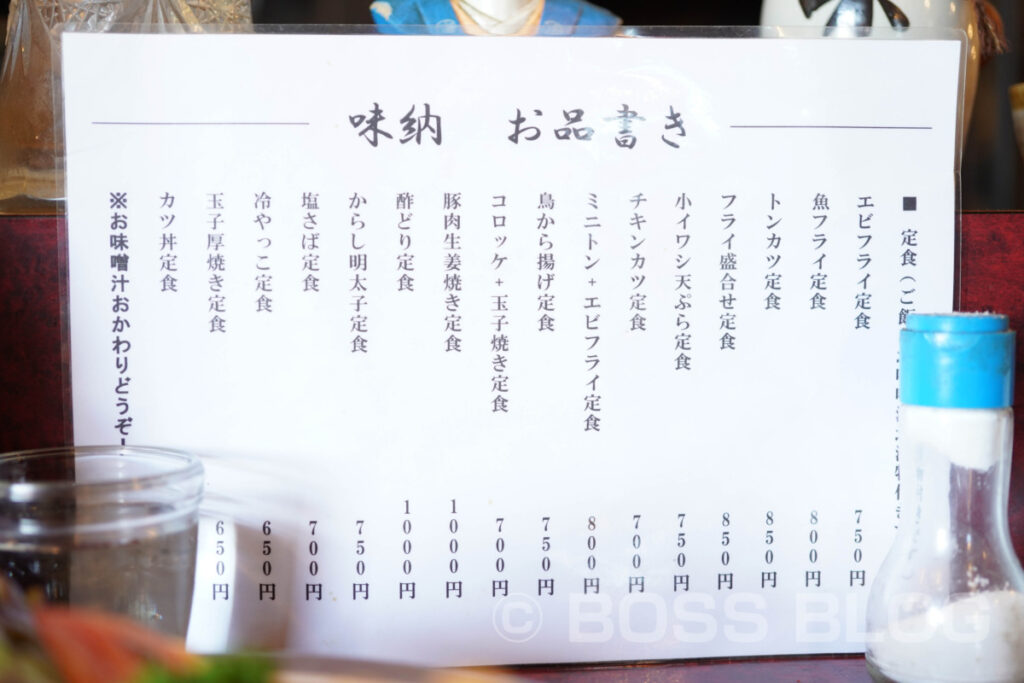 味納 お品書き
■ 定食(ご飯
エビフライ定食 750円
魚フライ定食 800円
トンカツ定食 850円
フライ盛合せ定食 850円
小イワシ天ぷら定食 750円
チキンカツ定食 700円
ミニトン+エビフライ定食 800円
鳥から揚げ定食 750円
コロッケ+玉子焼き定食 700円
豚肉生姜焼き定食 1000円
酢どり定食 1000円
からし明太子定食 750円
塩さば定食 700円
冷やっこ定食 650円
玉子厚焼き定食 650円
カツ丼定食
※お味噌汁おかわりどうぞ
© BOSS BLOG